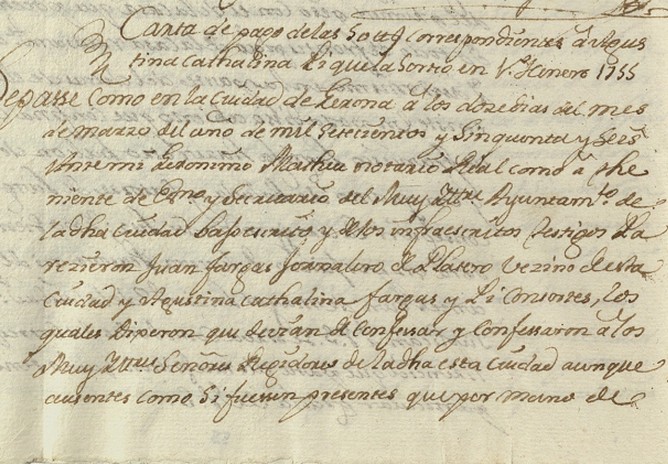 Carta de pago de las 50 ll correspondientes à Agus
tina Cathalina Pi que la sorteo en V.º Henero 1755
Sepasse como en la Ciudad de Gerona à los doze dias del mes
de Marzo del año de mil setecientos y sinquenta y seis
Ante mi Geronimo Mathiu notario Real como à the
niente de Es.no y Secretario del Muy Ittre Ayuntam.to de
la dha Ciudad bassescrito, y de los infraescritos testigos Pa
rezieron Juan fargas Jornalero de Platero Vezino de esta
Ciudad y Agustina Cathalina fargas y Pi Consortes, los
quales diperon que devian de Confessar y Confessaron à los
Muy Ittres Señores Regidores de la dha esta Ciudad aunque
ausentes como si fuessen presentes que por mano de